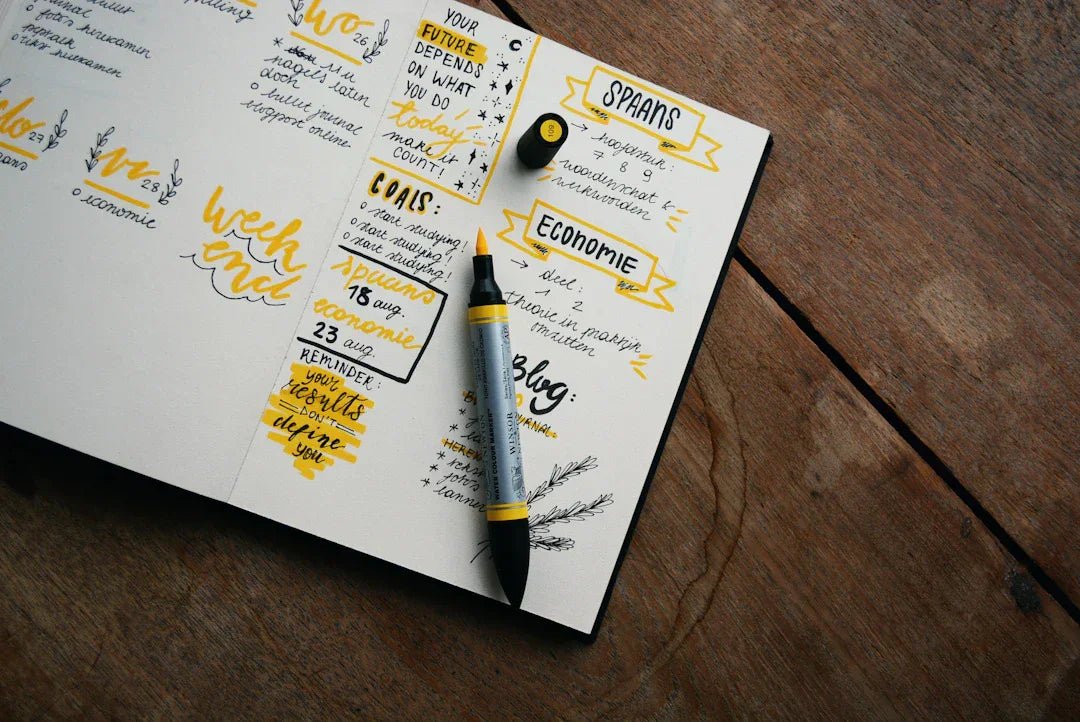 journal
foto's herexamen
o tekst herexamen
Wo 26
nagels laten
doen
o bullet journal
blogpost online
do 27
vr 28
o economie
week
end
YOUR
FUTURE
DEPENDS
ON WHAT
YOU DO
today
make it
COUNT!
GOALS:
o start studying!
o start studying!
o start studying!
spaans
18 aug.
economie
23 aug.
REMINDER:
your
results
DON'T
define
you
SPAANS
→ hoofdstuk:
7 8 9
woordenschat &
werkwoorden
ECONOMIE
→ deel:
1 2
theorie in praktijk
omzetten
Blog:
109
WINSOR
NEWTON
WATER COLOUR MARKER